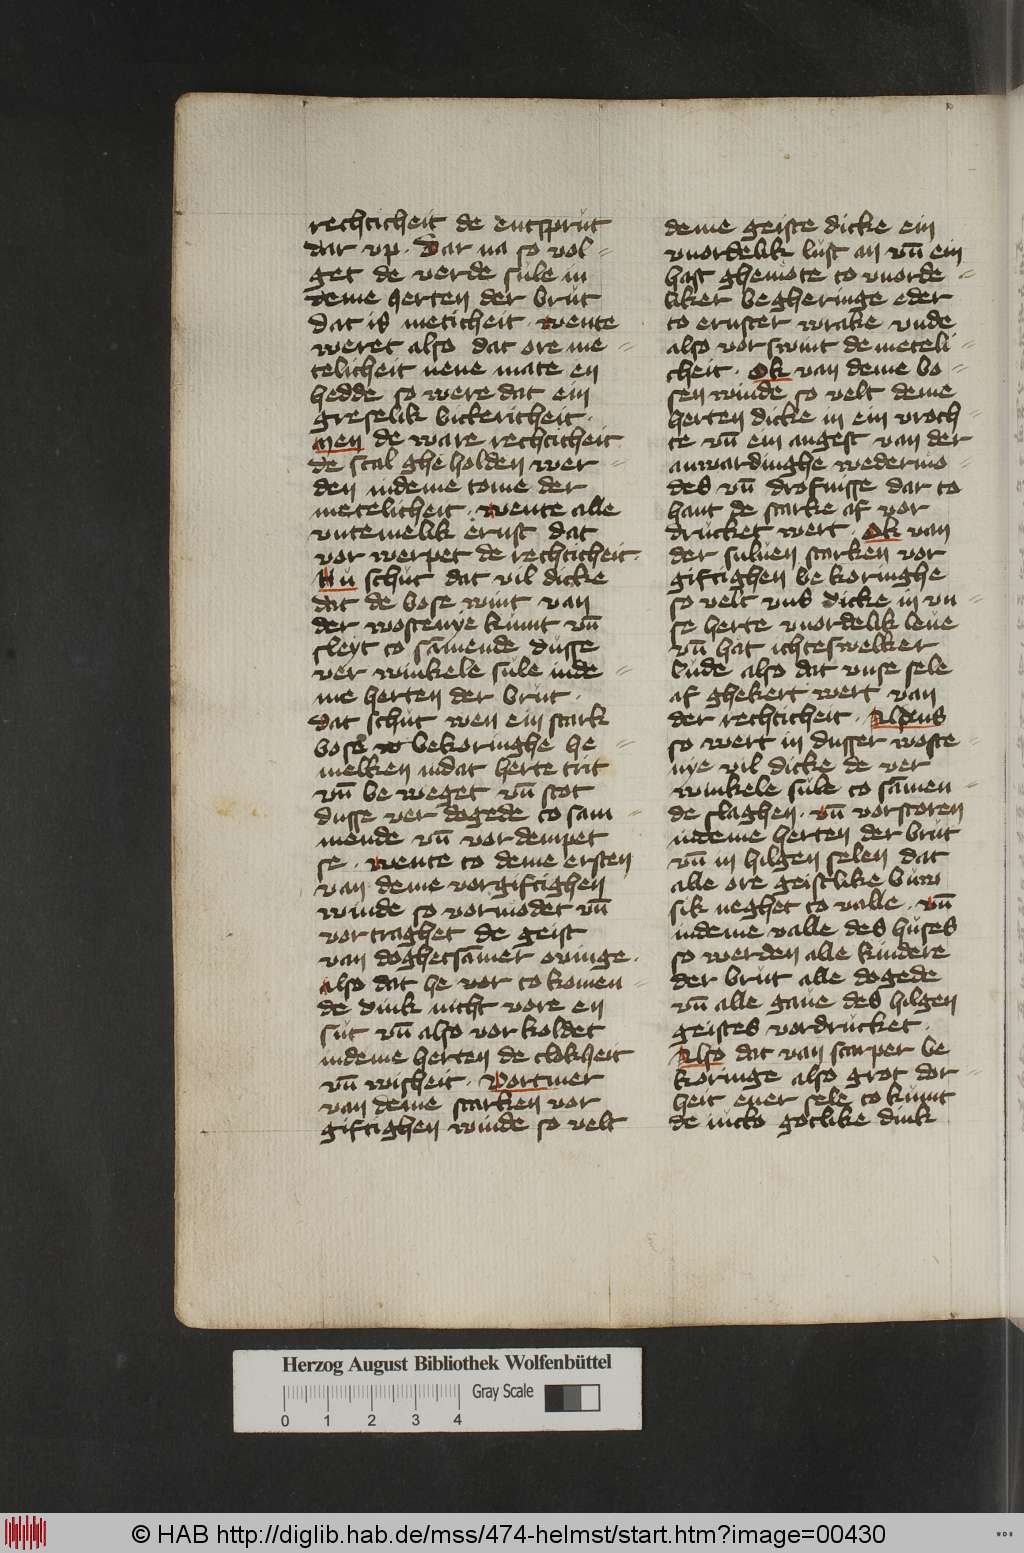 rechticheit de entsprut
dar vp. Dar na so vol-
get de verde sule in
deme herten der brut
Dat is meticheit. wente
weret also dat ore me-
telicheit nene mate en
hedde so were dat ein
greselik bickericheit.
Men de ware rechticheit
de scal ghe holden wer-
den indeme tome der
metelicheit. wente alle
vntemelik ernst dat
vor werpet de rechticheit.
Nu schut dat vil dicke
dat de bose wint van
der wostenye kumt vn̄
sleyt to sāmende dusse
ver winkele sule inde-
me herten der brut.
Dat schut wen ein stark
bose bekoringhe he-
melken indat herte trit
vn̄ be weget vn̄ stot
dusse ver dogede to sam-
mende vn̄ vordempet
se. wente to deme ersten
van deme vorgiftighen
winde so vormodet vn̄
vortraghet de geist
van doghetsāmer ovinge.
also dat he vor to komen-
de dink nicht vore en
sut vn̄ also vor koldet
indeme herten de clokheit
vn̄ wisheit. Vortmer
van deme starken vor
giftighen winde so velt
deme geiste dicke ein
vnordelik lust an vn̄ ein
hast ghemote to vnorde-
liker begheringe eder
to ernster wrake vnde
also vorswint de meteli-
cheit. Ok van deme bo-
sen winde so velt deme
herten dicke in ein vroch-
te vn̄ ein angest van der
anwardinghe wedermo-
des vn̄ drofnisse dar to
hant de starke af vor
drucket wert. Ok van
der suluen starken vor
giftighen be koringhe
so velt vns dicke in vn-
se herte vnordelik leue
vn̄ hat ichteswelker
lude also dat vnse sele
af ghekert wert van
der rechticheit. Aldus
so wert in dusser woste-
nye vil dicke de ver
winkele sule to sāmen-
de slaghen. vn̄ vorstoren
indeme herten der brut
vn̄ in hilgen selen dat
alle ore geistlike buw
sik neghet to valle. vn̄
indeme valle des huses
so werden alle kindere
der brut alle dogede
vn̄ alle gaue des hilgen
geistes vordrucket.
Also dat van scarper be
koringe also grot dor-
heit ener sele to kumt
de nicht gotlike dink
Herzog August Bibliothek Wolfenbüttel
Gray Scale
0 1 2 3 4
© HAB http://diglib.hab.de/mss/474-helmst/start.htm?image=00430